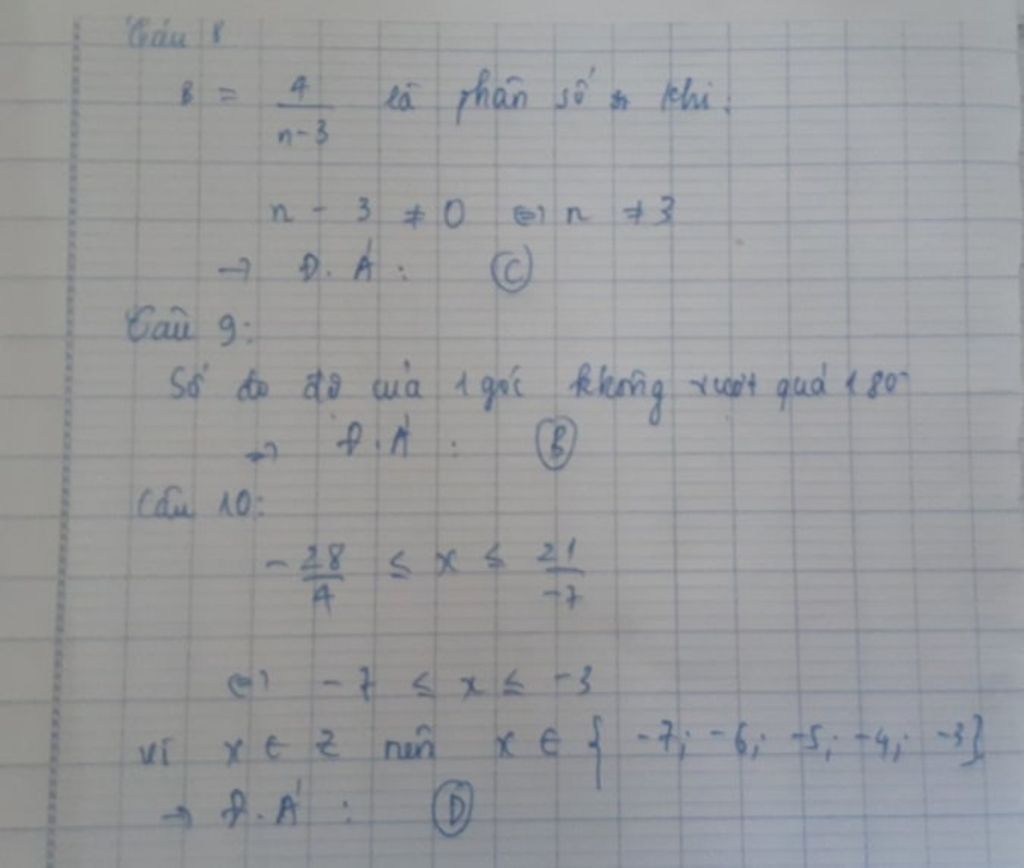 Câu 8
B = 4/(n-3) là phân số khi:
n - 3 ≠ 0 <=> n ≠ 3
→ Đ.Á: C
Câu 9:
Số đo độ của 1 góc không vượt quá 180°
→ Đ.Á: B
Câu 10:
-28/4 ≤ x ≤ 21/-7
<=> -7 ≤ x ≤ -3
vì x ∈ Z nên x ∈ { -7; -6; -5; -4; -3}
→ Đ.Á: D